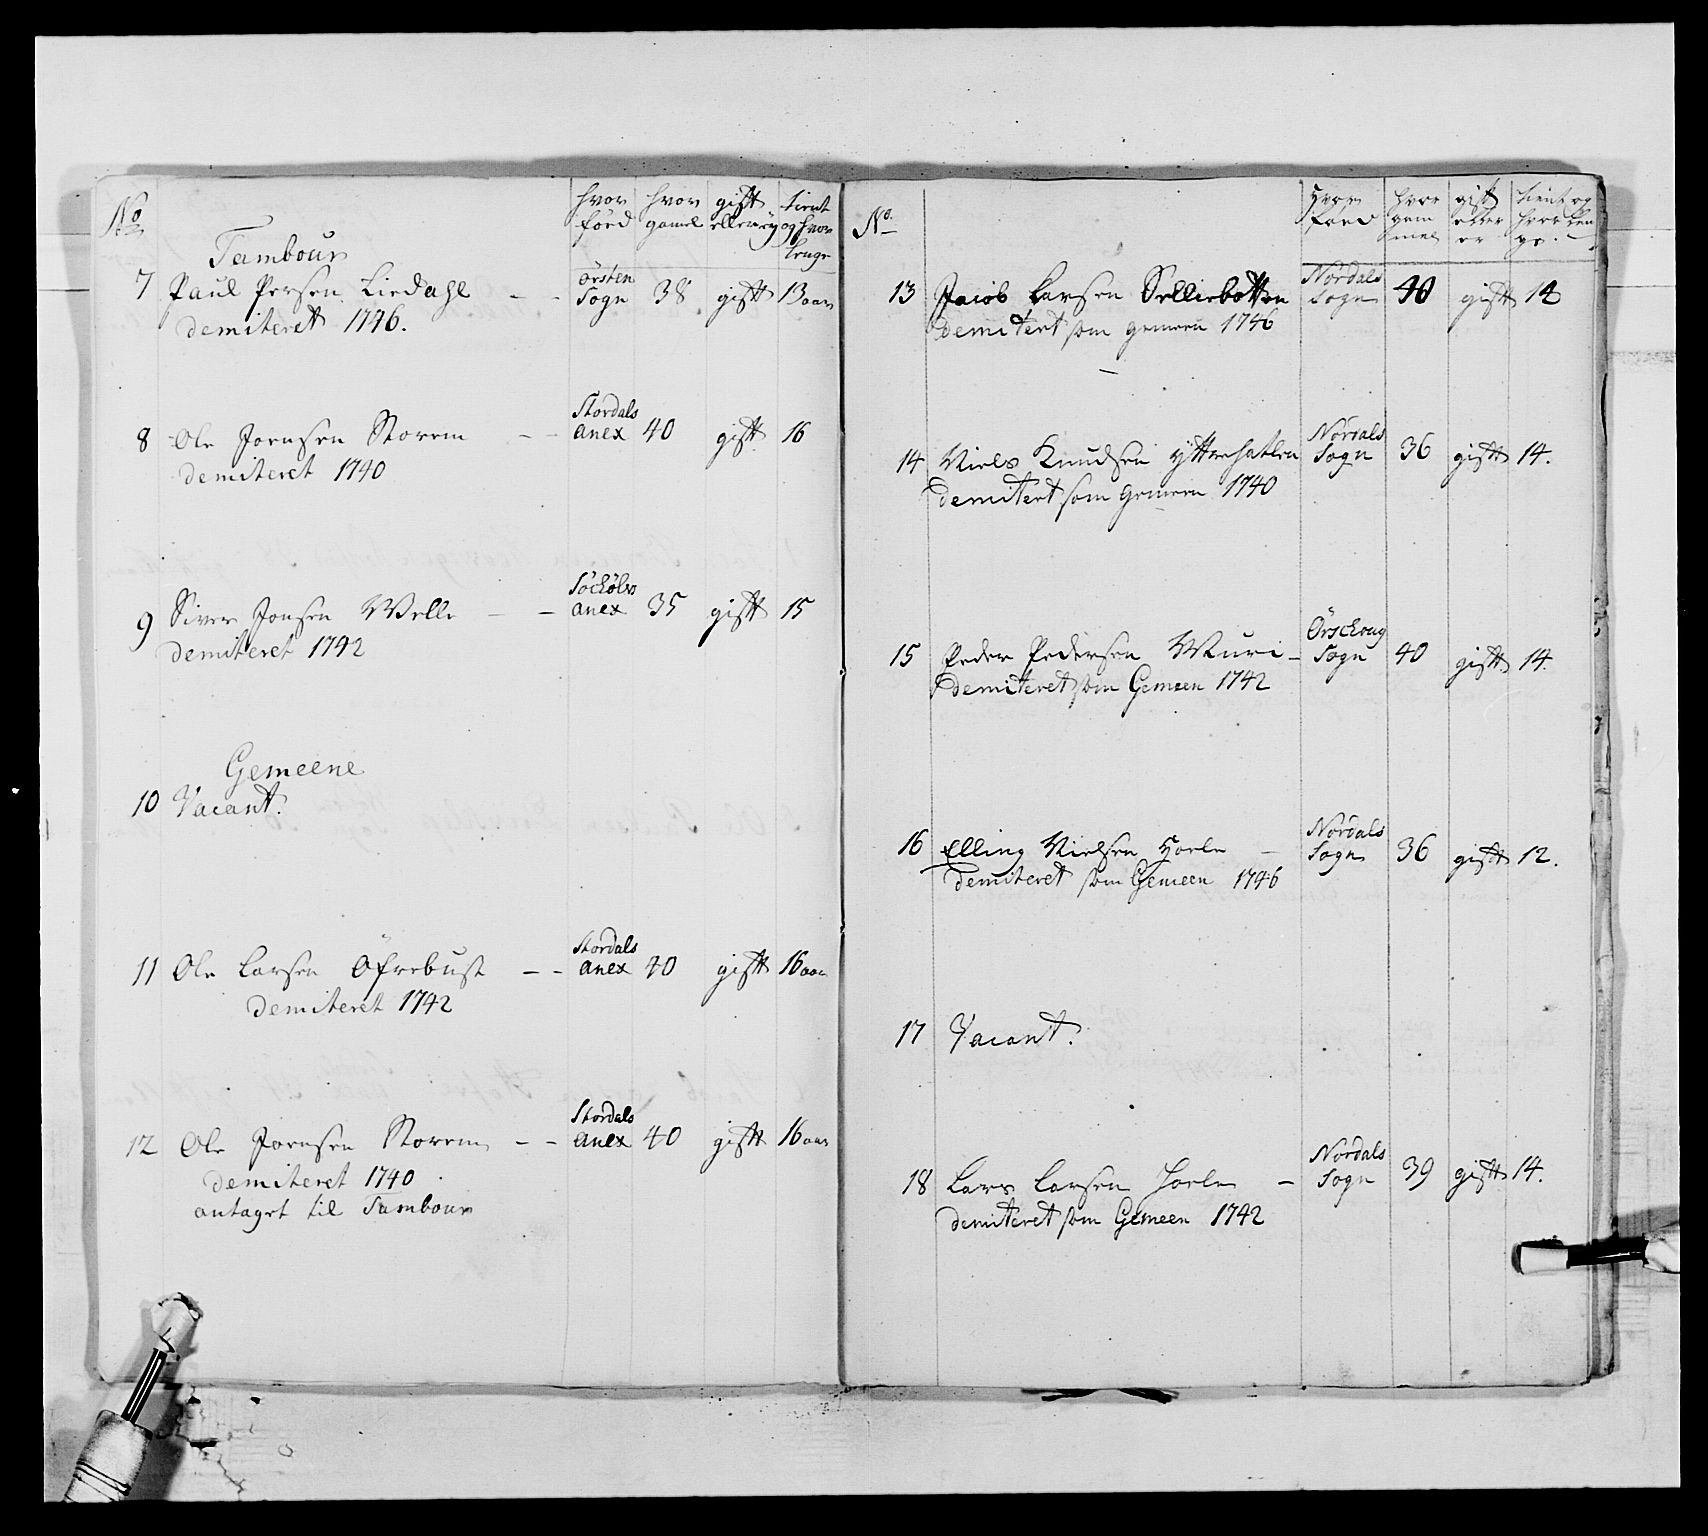 No
hvor född
hvor gamel
gift eller ey
tient og hvor lenge
Tambour
7 Paul Persen Liedahl - - örsten Sogn 38 gift 13 aar
demiteret 1746.
8 Ole Jornsen Storem - - Stordals anex 40 gift 16
demiteret 1740
9 Siver Jonsen Welle - - Söchölvs anex 35 gift 15
demiteret 1742
Gemeene
10 Vacant.
11 Ole Larsen Öfrebust - - Stordals anex 40 gift 16 aar
demiteret 1742
12 Ole Jornsen Storem - - Stordals anex 40 gift 16 aar
demiteret 1740
antaget til Tambour
No.
Hvor föed
hvor gam mel
gift eller
tient og hvor
13 Jacob Larsen Selliebotten Nordals Sogn 40 gift 14
demitert som gemeen 1746
14 Niels Knudsen Yttrehatlen Nordals Sogn 36 gift 14.
demitert som Gemeen 1740
15 Peder Pedersen Muri - Örschoug Sogn 40 gift 14.
demiteret som Gemeen 1742
16 Elling Nielsen Hoele - Nordals Sogn 36 gift 12.
demiteret som Gemeen 1746
17 Vacant.
18 Lars Larsen Hoele - Nordals Sogn 39 gift 14.
demiteret som Gemeen 1742